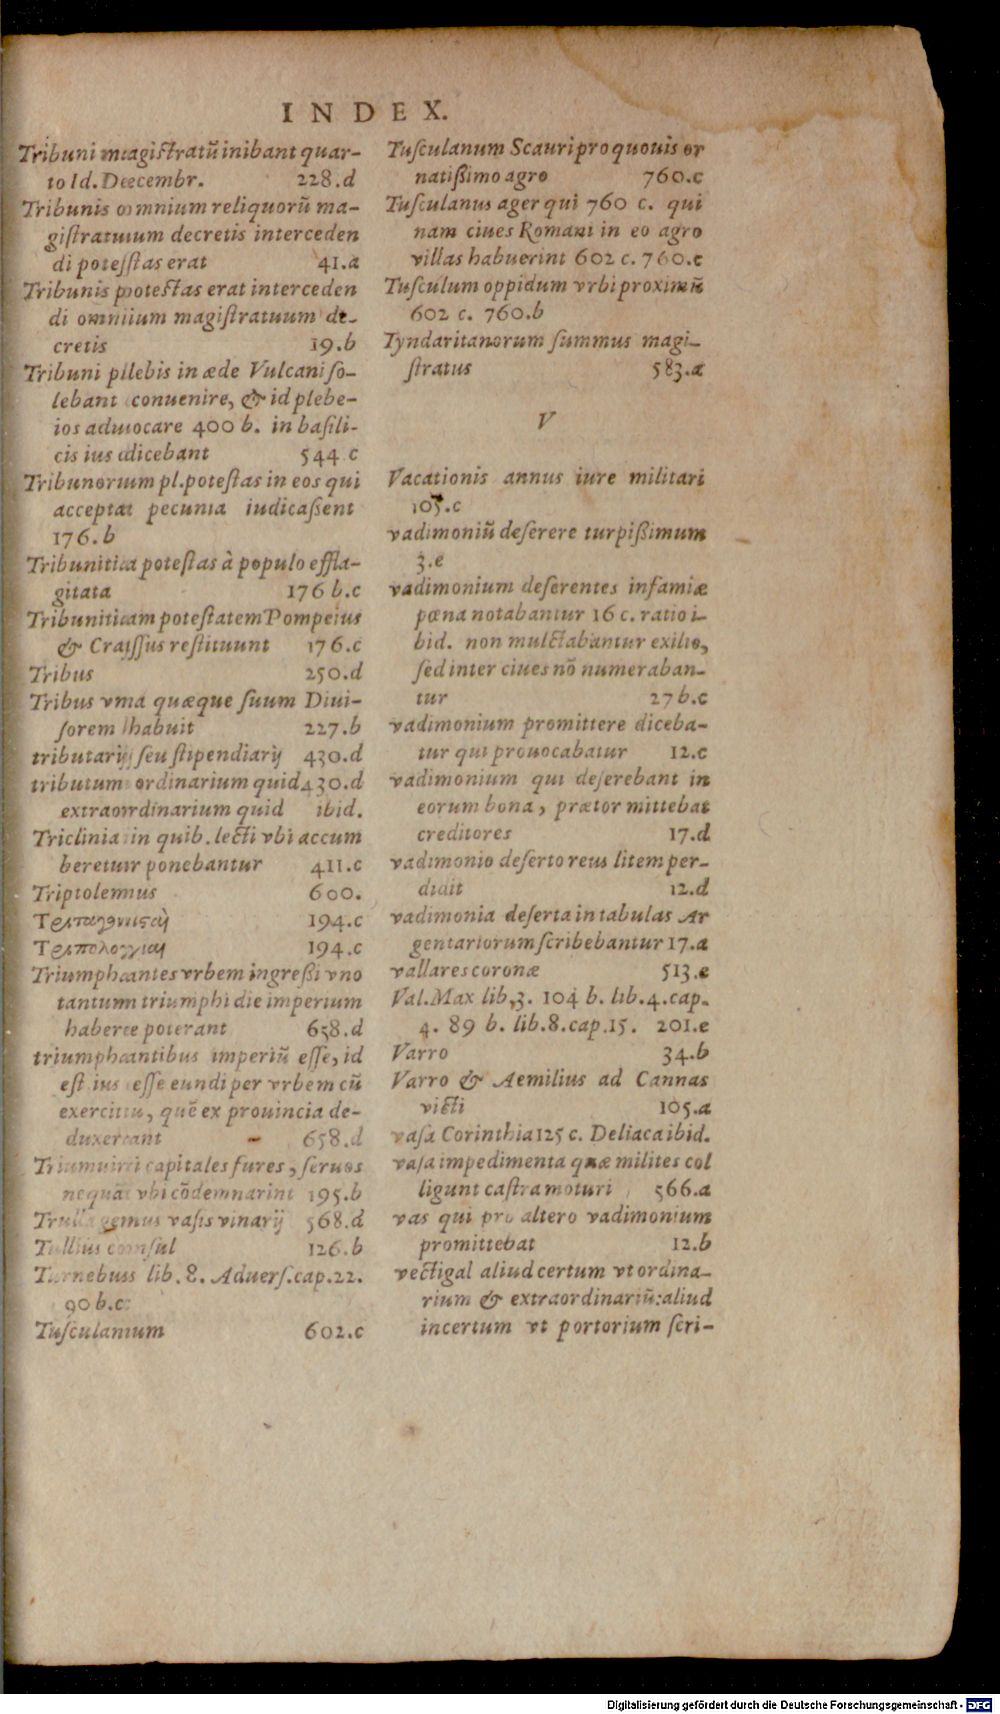 INDEX.
Tribuni magiſtratũ inibant quar-
to Id. Decembr. 228.d
Tribunis omnium reliquorũ ma-
giſtratuum decretis interceden
di poteſtas erat 41.a
Tribunis poteſtas erat interceden
di omnium magiſtratuum de-
cretis 19.b
Tribuni plebis in æde Vulcani ſo-
lebant conuenire, & id plebe-
ios aduocare 400 b. in baſili-
cis ius dicebant 544 c
Tribunorum pl. poteſtas in eos qui
acceptat pecunia iudicaßent
176.b
Tribunitia poteſtas à populo effla-
gitata 176 b.c
Tribunitiam poteſtatem Pompeius
& Craſſus reſtituunt 176.c
Tribus 250.d
Tribus vna quæque ſuum Diui-
ſorem habuit 227.b
tributarij ſeu ſtipendiarij 430.d
tributum ordinarium quid 430.d
extraordinarium quid ibid.
Triclinia in quib. lecti vbi accum
beretur ponebantur 411.c
Triptolemus 600.
194.c
194.c
Triumphantes vrbem ingreßi vno
tantum triumphi die imperium
habere poterant 658.d
triumphantibus imperiũ eſſe, id
eſt ius eſſe eundi per vrbem cũ
exercitu, quẽ ex prouincia de-
duxerant 658.d
Triumuiri capitales fures, ſeruos
nequã vbi cõdemnarint 195.b
Trulla gemus vaſis vinarij 568.d
Tullius conſul 126.b
Turnebus lib. 8. Aduerſ. cap. 22.
90 b.c
Tuſculanum 602.c
Tuſculanum Scauri pro quouis or
natißimo agro 760.c
Tuſculanus ager qui 760 c. qui
nam ciues Romani in eo agro
villas habuerint 602 c. 760.c
Tuſculum oppidum vrbi proximũ
602 c. 760.b
Tyndaritanorum ſummus magi-
ſtratus 583.a
V
Vacationis annus iure militari
105.c
vadimoniũ deſerere turpißimum
3.e
vadimonium deſerentes infamiæ
pœna notabantur 16 c. ratio i-
bid. non mulctabantur exilio,
ſed inter ciues nõ numeraban-
tur 27 b.c
vadimonium promittere diceba-
tur qui prouocabatur 12.c
vadimonium qui deſerebant in
eorum bona, prætor mittebat
creditores 17.d
vadimonio deſerto reus litem per-
didit 12.d
vadimonia deſerta in tabulas Ar
gentariorum ſcribebantur 17.a
vallares coronæ 513.e
Val. Max lib, 3. 104 b. lib. 4. cap.
4. 89 b. lib. 8. cap. 15. 201.e
Varro 34.b
Varro & Aemilius ad Cannas
victi 105.a
vaſa Corinthia 125 c. Deliaca ibid.
vaſa impedimenta quæ milites col
ligunt caſtra moturi 566.a
vas qui pro altero vadimonium
promittebat 12.b
vectigal aliud certum vt ordina-
rium & extraordinariũ: aliud
incertum vt portorium ſcri-
Digitalisierung gefördert durch die Deutsche Forschungsgemeinschaft - DFG